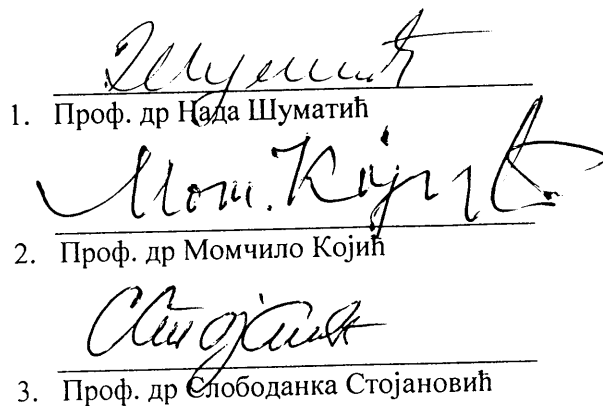 1. Проф. др Нада Шуматић
Мом. Којић
2. Проф. др Момчило Којић
3. Проф. др Слободанка Стојановић